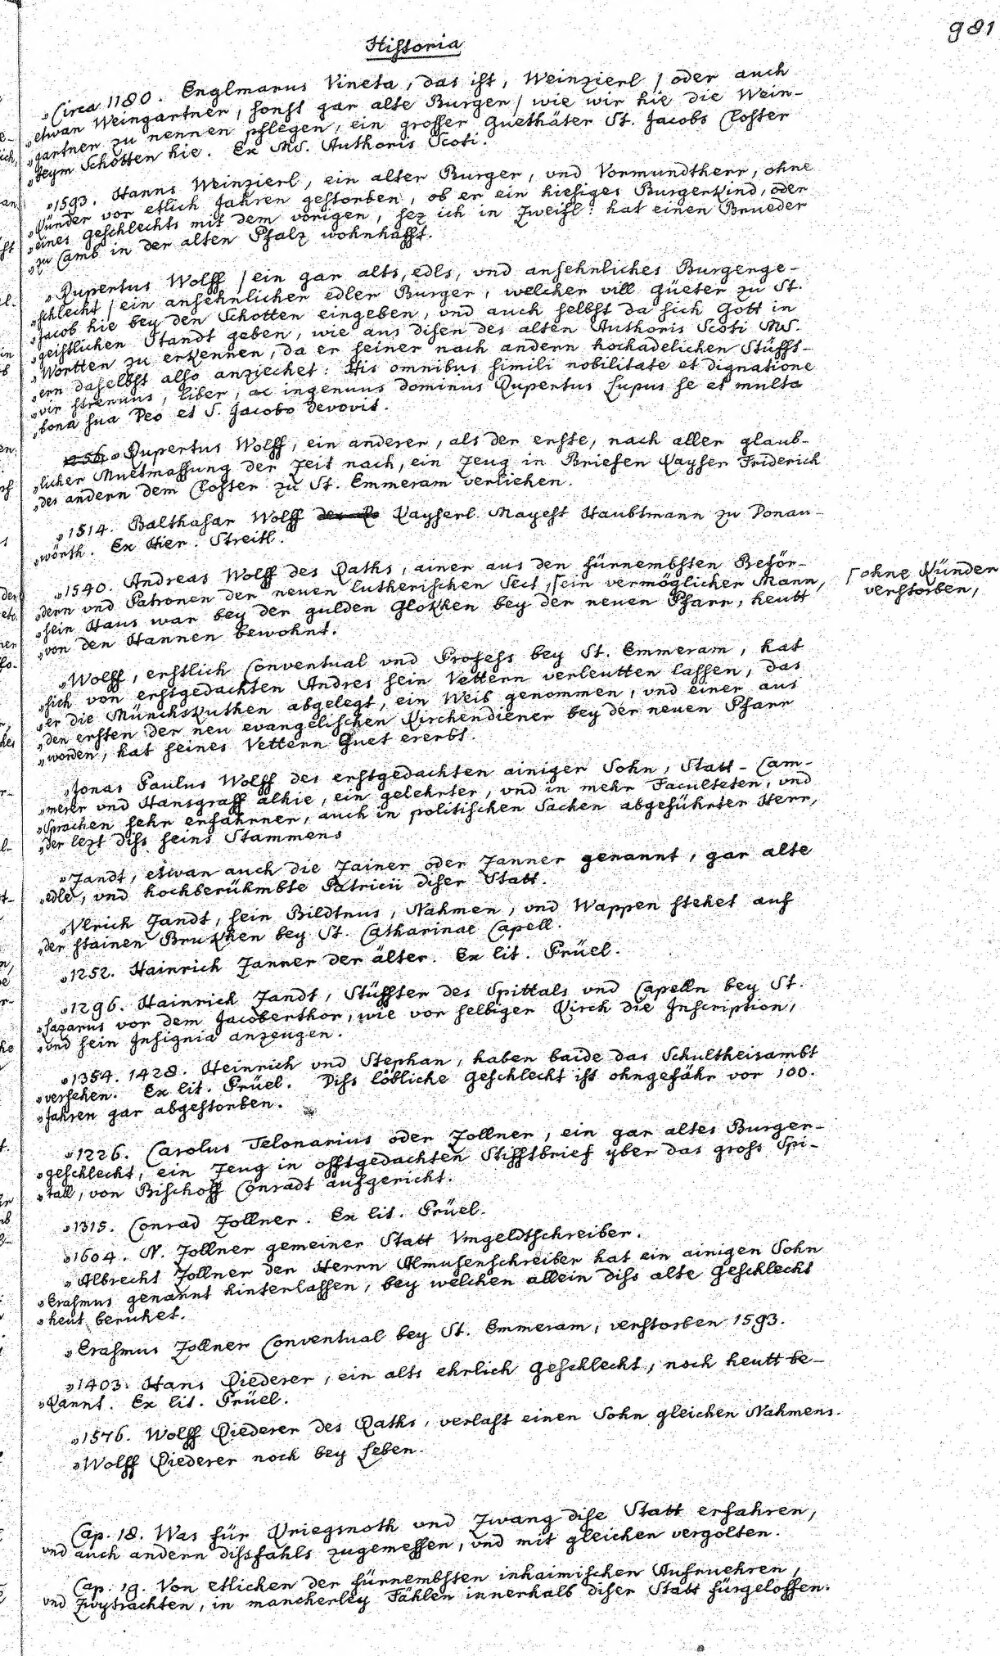 981
Historia
„Circa 1180. Englmarus Vineta, das ist, Weinzierl / oder auch
„etwan Weingartner, sonst gar alte Burger / wie wir hie die Wein-
„gartner zu nennen pflegen, ein grosser Guethäter St. Jacobs Closter
„beym Schotten hie. Ex MS. Authoris Scoti.
„1593. Hanns Weinzierl, ein alter Burger, und Vormundtherr, ohne
„Künder vor etlich Jahren gestorben, ob er ein hiesiges Burgerkind, oder
„eines geschlechts mit dem vorigen, sez ich in Zweifl: hat einen Brueder
„zu Camb in der alten Pfalz wohnhafft.
„Rupertus Wolff / ein gar alts, edls, vnd ansehnliches Burgerge-
„schlecht / ein ansehnlicher edler Burger, welcher vill güeter zu St.
„Jacob hie bey den Schotten eingeben, vnd auch selbst da sich Gott in
„geistlichen Standt geben, wie aus disen des alten Authoris Scoti MS.
„Wortten zu erkennen, da er seiner nach andern hochadelichen Stüfft-
„ern daselbst also anziechet: His omnibus simili nobilitate et dignatione
„vir strenuus, liber, ac ingenuus dominus Rupertus Lupus se et multa
„bona sua Deo et S. Jacobo devovit.
„Rupertus Wolff, ein anderer, als der erste, nach aller glaub-
„licher Muetmassung der Zeit nach, ein Zeug in Briefen Kayser Friderich
„des andern dem Closter zu St. Emmeram verlichen.
„1514. Balthasar Wolff Kayserl. Mayest Haubtmann zu Donau-
„wörth. Ex Hier. Streitl.
„1540. Andreas Wolff des Raths, ainer aus den fürnembsten Beför-
„dern vnd Patronen der neuen lutherischen Sect, ⌈ein vermöglicher Mann,
⌈ohne Künder
verstorben,
„sein Haus war bey der gulden Glokken bey der neuen Pfarr, heutt
„von den Hannen bewohnt.
„Wolff, erstlich Conventual vnd Profess bey St. Emmeram, hat
„sich von erstgedachten Andres sein Vettern verleutten lassen, das
„er die Münchskutten abgelegt, ein Weib genommen, vnd einer aus
„den ersten der neu evangelischen Kirchendiener bey der neuen Pfarr
„worden, hat seines Vettern Guet ererbt.
„Jonas Paulus Wolff des erstgedachten ainiger Sohn, Statt-Cam-
„merer vnd Hansgraff alhie, ein gelehrter, vnd in mehr Faculteten, vnd
„Sprachen sehr erfahrner, auch in politischen Sachen abgeführter Herr,
„der lezt diss seins Stammens
„Zandt, etwan auch die Zainer oder Zanner genannt, gar alte
„edle, vnd hochberühmbte Patricii diser Statt.
„Vlrich Zandt, sein Bildtnus, Nahmen, vnd Wappen stehet auf
„der stainen Brukken bey St. Catharinae Capell.
„1252. Hainrich Zanner der älter. Ex lit. Prüel.
„1296. Hainrich Zandt, Stüffter des Spittals vnd Capelln bey St.
„Lazarus vor dem Jacoberthor, wie vor selbiger Kirch die Inscription,
„vnd sein Insignia anzeugen.
„1354. 1428. Heinrich vnd Stephan, haben baide das Schultheisambt
„versehen. Ex lit. Prüel. Diss löbliche geschlecht ist ohngefähr vor 100.
„Jahren gar abgestorben.
„1226. Carolus Telonarius oder Zollner, ein gar altes Burger-
„geschlecht, ein Zeug in offtgedachten Stifftbrief yber das gross Spi-
„tall, von Bischoff Conradt aufgericht.
„1315. Conrad Zollner. Ex lit. Prüel.
„1604. N. Zollner gemeiner Statt Vmgeldtschreiber.
„Albrecht Zollner der Herrn Almusenschreiber hat ein ainigen Sohn
„Erasmus genannt hinterlassen, bey welchen allein diss alte geschlecht
„heut beruhet.
„Erasmus Zollner Conventual bey St. Emmeram, verstorben 1593.
„1403. Hans Riederer, ein alts ehrlich geschlecht, noch heutt be-
„kannt. Ex lit. Prüel.
„1576. Wolff Riederer des Raths, verlast einen Sohn gleichen Nahmens.
„Wolff Riederer noch bey Leben.
Cap. 18. Was für Kriegsnoth vnd Zwang dise Statt erfahren,
vnd auch andern dissfahls zugemessen, vnd mit gleichen vergolten.
Cap. 19. Von etlichen der fürnembsten inhaimischen Aufruehren,
vnd Zwytrachten, in mancherley Fählen innerhalb diser Statt fürgeloffen.